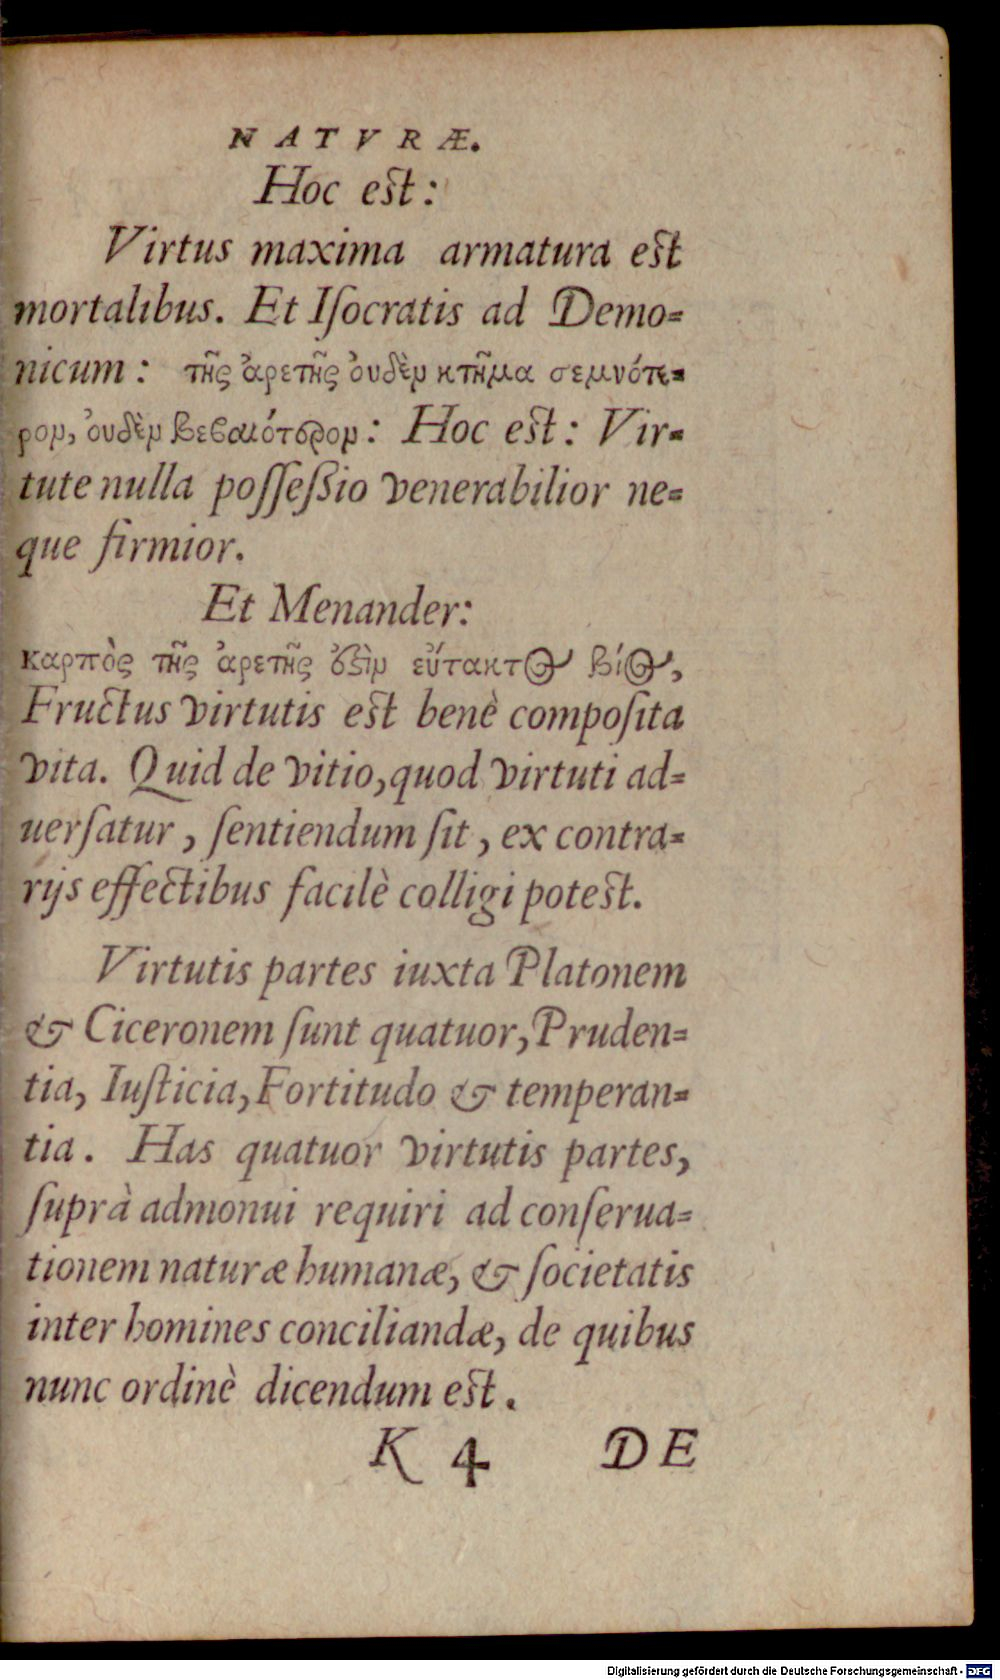 NATVRÆ.
Hoc est:
Virtus maxima armatura est
mortalibus. Et Iſocratis ad Demo-
nicum: τῆς ἀρετῆς ὀυδὲμ κτῆμα σεμνότε-
ρομ, ὀυδὲμ βεβαιότερομ: Hoc est: Vir-
tute nulla poſſeſsio venerabilior ne-
que firmior.
Et Menander:
καρπὸς τῆς ἀρετῆς ὅξὶμ εὔτακτος βίος,
Fructus virtutis est benè compoſita
vita. Quid de vitio, quod virtuti ad-
uerſatur, ſentiendum ſit, ex contra-
rijs effectibus facilè colligi potest.
Virtutis partes iuxta Platonem
& Ciceronem ſunt quatuor, Pruden-
tia, Iuſticia, Fortitudo & temperan-
tia. Has quatuor virtutis partes,
ſuprà admonui requiri ad conſerua-
tionem naturæ humanæ, & ſocietatis
inter homines conciliandæ, de quibus
nunc ordinè dicendum est.
K 4 DE
Digitalisierung gefördert durch die Deutsche Forschungsgemeinschaft - DFG